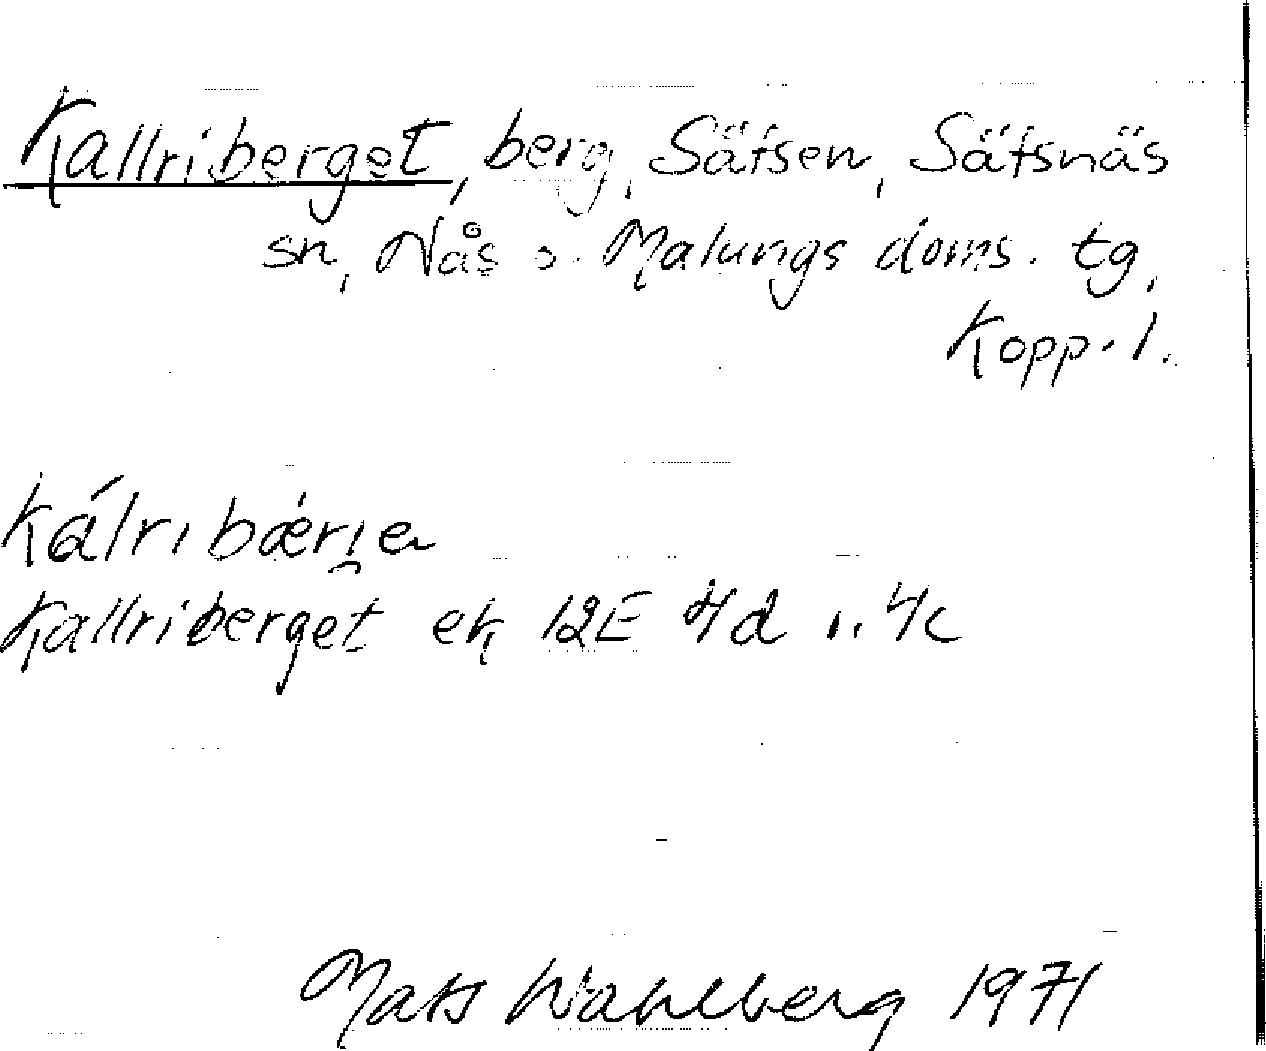 Kallriberget, berg, Sätsen, Sätsnäs
sn, Nås o. Malungs doms. tg,
Kopp. l.
Kallriberget ek 12E 4d
Mats Wahlberg 1971